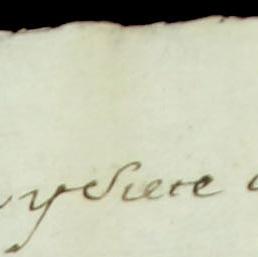 y Siete